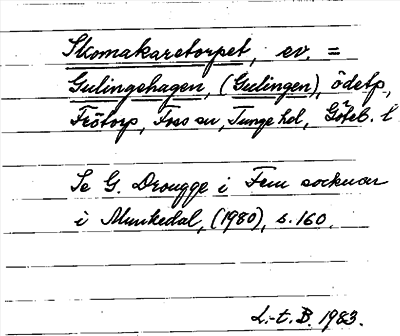 Skomakaretorpet, ev. =
Gulingshagen, (Gulingen), ödetp,
Frötorp, Foss sn, Tunge hd, Göteb. l
Se G. Drougge i Fem socknar
i Munkedal, (1980), s. 160.
L.-t. B. 1983.